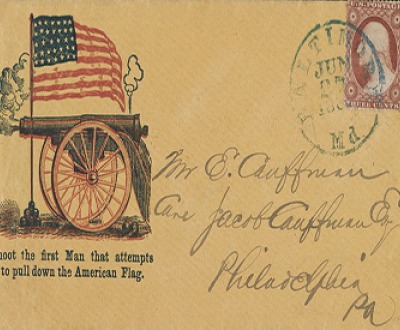 U.S. POSTAGE
THREE CENTS
BALTIMORE
JUN
Md.
Mr E. Cauffman
Care Jacob Cauffman Eq
Philadelphia
Pa
hoot the first Man that attempts
to pull down the American Flag.